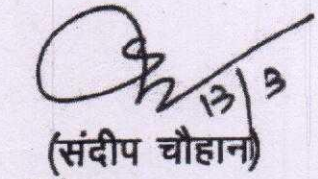 13/3
(संदीप चौहान)